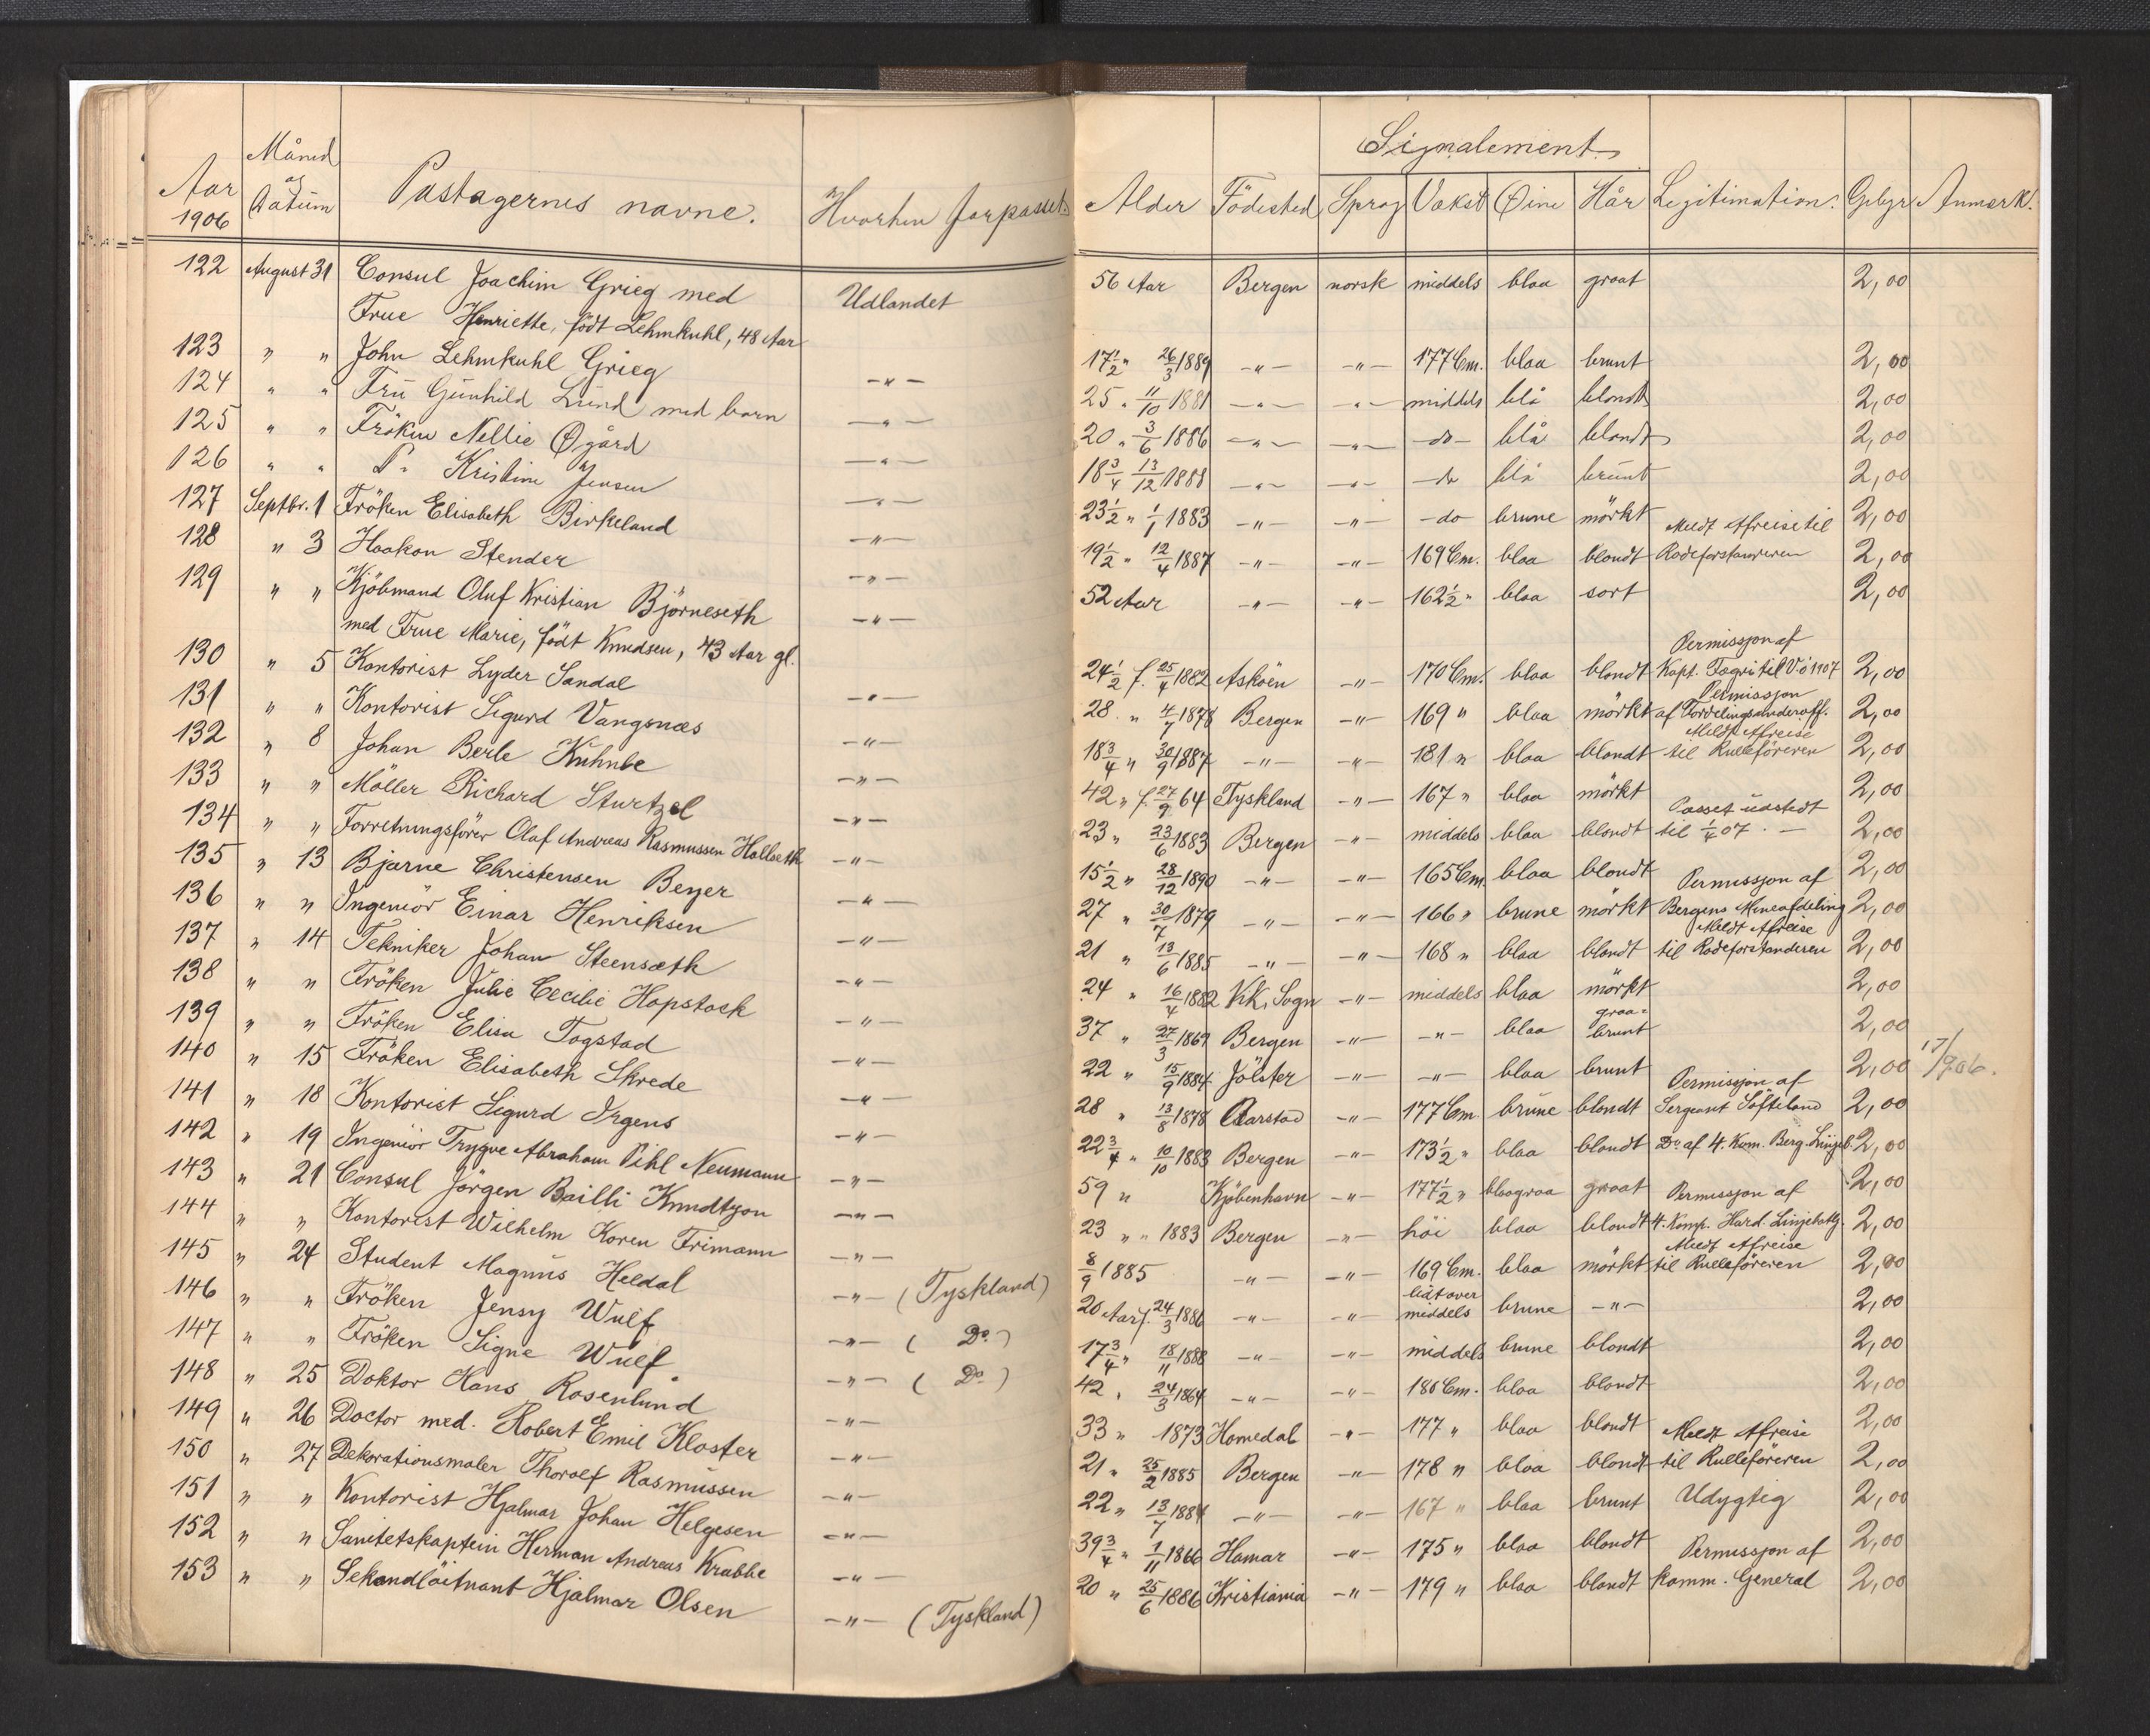 Aar 1906 Måned og Datum Passagernes navne. Hvorhen Jarpasset. Alder Födested Signalement Legitimation. Gebyr Anmærk.
Sprog Vækst Øine Hår
122 August 31 Consul Joachim Grieg med Udlandet 56 Aar Bergen norsk middels blaa graat 2,00
Frue Henriette, født Lehmkuhl, 48 Aar
123 " " John Lehmkuhl Grieg —"— 17½ " 26/3 1889 —"— —"— 177 Cm. blaa brunt 2,00
124 " " Frü Günhild Lünd med barn —"— 25 " 11/10 1881 —"— —"— middels blå blondt 2,00
125 " " Fröken Nellie Øgård —"— 20 " 3/6 1886 —"— —"— —do— blå blondt 2,00
126 " " Do Kristine Jensen —"— 18¾ 13/12 1888 —"— —"— —do blå brünt 2,00
127 Septbr. 1 Fröken Elisabeth Birkeland —"— 23½ " 1/1 1883 —"— —"— —do brune mörkt 2,00
128 " 3 Haakon Stender —"— 19½ " 12/4 1887 —"— —"— 169 Cm. blaa blondt Meldt Afreise til Rodeforstanderen 2,00
129 " " Kjöbmand Oluf Kristian Björneseth —"— 52 Aar —"— —"— 162½ " blaa sort 2,00
med Frue Marie, født Knudsen, 43 Aar gl.
130 " 5 Kontorist Lyder Sandal —"— 24½ f. 25/4 1882 Asköen —"— 170 Cm. blaa blondt Permissjon af Kapt. Fagri til 1907 2,00
131 " " Kontorist Sigurd Vangsnæs —"— 28 " 4/7 1878 Bergen —"— 169 " blaa mörkt Permissjon af Fordelingsunderoff. 2,00
132 " 8 Johan Berle Kuhnle —"— 18¾ " 30/9 1887 —"— —"— 181 " blaa blondt Meldt Afreise til Rulleföreren 2,00
133 " " Möller Richard Sturtzel —"— 42 " f. 27/9 64 Tyskland —"— 167 " blaa mörkt 2,00
134 " " Forretningsfører Olaf Andreas Rasmussen Hallseth —"— 23 " 23/6 1883 Bergen —"— middels blaa blondt Passet üdstedt til 1/4 07. — 2,00
135 " 13 Bjarne Christensen Beyer —"— 15½ " 28/12 1890 —"— —"— 165 Cm. blaa blondt 2,00
136 " " Ingeniör Einar Henriksen —"— 27 " 30/7 1879 —"— —"— 166 " brune mörkt Permissjon af Bergens Mineafdeling 2,00
137 " 14 Tekniker Johan Steensæth —"— 21 " 13/6 1885 —"— —"— 168 " blaa blondt Meldt Afreise til Rodeforstanderen 2,00
138 " " Fröken Julie Cecilie Hopstock —"— 24 " 16/4 1882 Vik, Sogn —"— middels blaa mörkt 2,00
139 " " Fröken Elisa Togstad —"— 37 " 27/3 1869 Bergen —"— —"— blaa graa=brunt 2,00
140 " 15 Fröken Elisabeth Skrede —"— 22 " 15/9 1884 Jölster —"— —"— blaa brunt 2,00 17/9 06.
141 " 18 Kontorist Sigurd Irgens —"— 28 " 13/8 1878 Aarstad —"— 177 Cm. brüne blondt Permissjon af Sergeant Søfteland 2,00
142 " 19 Ingeniör Trygve Abraham Pihl Neumann —"— 22¾ " 10/10 1883 Bergen —"— 173½ " blaa blondt Do af 4. Kom. Berg. Linjeb. 2,00
143 " 21 Consul Jörgen Bailli Knudtzon —"— 59 " Kjöbenhavn —"— 177½ " blaagraa graat 2,00
144 " " Kontorist Wilhelm Koren Frimann —"— 23 " " 1883 Bergen —"— höi blaa blondt Permissjon af 4. Komp. Hard. Linjebatlj. 2,00
145 " 24 Student Magnüs Heldal —"— 8/9 1885 —"— —"— 169 Cm. blaa mörkt Meldt Afreise til Rulleföreren 2,00
146 " " Fröken Jensy Wulf —"— (Tyskland) 20 Aar f. 24/3 1886 —"— —"— lidt over middels brune —"— 2,00
147 " " Fröken Signe Wulf —"— ( Do ) 17¾ " 18/11 1888 —"— —"— middels brune blondt 2,00
148 " 25 Doktor Hans Rosenlund —"— ( Do ) 42 " 24/3 1864 —"— —"— 180 Cm. blaa blondt 2,00
149 " 26 Doctor med. Robert Emil Kloster —"— 33 " 1873 Homedal —"— 177 " blaa blondt 2,00
150 " 27 Dekorationsmaler Thoralf Rasmüssen —"— 21 " 25/2 1885 Bergen —"— 178 " blaa blondt Meldt Afreise til Rulleföreren 2,00
151 " " Kontorist Hjalmar Johan Helgesen —"— 22 " 13/7 1884 —"— —"— 167 " blaa brunt Udygtig 2,00
152 " " Sanitetskaptein Herman Andreas Krabbe —"— 39¾ " 1/11 1866 Hamar —"— 175 " blaa blondt 2,00
153 " " Sekondlöitnant Hjalmar Olsen —"— (Tyskland) 20 " 25/6 1886 Kristiania —"— 179 " blaa blondt Permissjon af komm. General 2,00